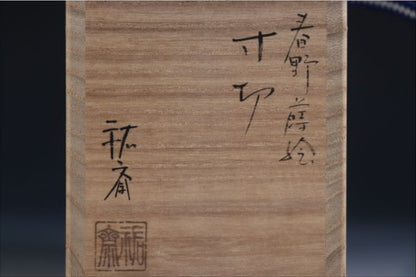 春野蒔絵
寸切
祐斎
祐斎